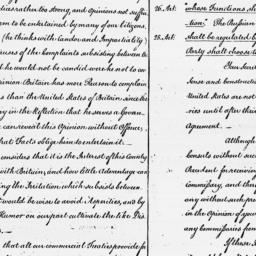 dices rather too strong, and opinions not suffi
em to be entertained by many of our Citizens.
(he thinks with Candor and Impartiality)
auses of the Complaints subsisting between to
t he would not be candid were he not to con
pinion Britain has more Reason to complain
s than the United States of Britain since the
y in the Reflection that he serves a Govern
can reveil this Opinion without offence,
hat Facts oblige him to entertain it.
onsiders that it is the Interest of this Country
with Britain; and how little Advantage can
ing the Irritation which subsists between
t would be wise to avoid Asperities, and by
Humor on our part cultivate the like Dis
s.
that all our commercial Treaties provide fo
26. Art: "whose Functions shall
tion". The Prussian
25. Art: shall be regulated
Party shall choose to
sense and construction
of the United States
ries until after their
Agreement.
Although
Consuls without suc
Precedent for receiving
Commissary, and the
any without such pro
in the opinion of your
any Commissaries from
If these